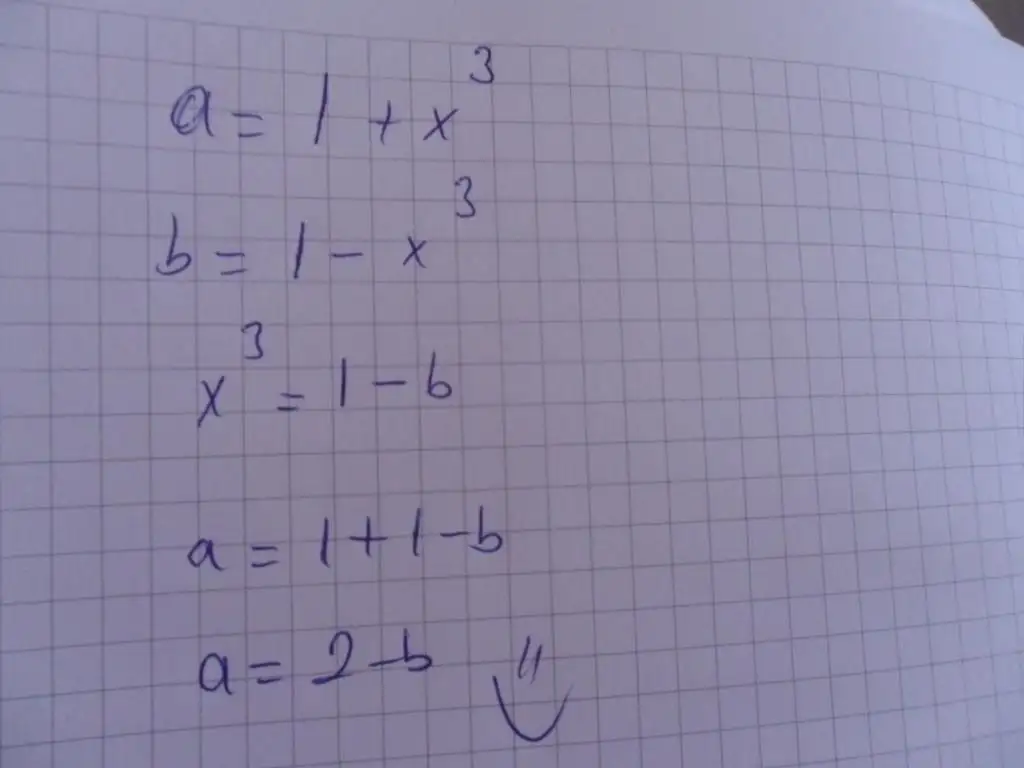 a = 1 + x³
b = 1 - x³
x³ = 1 - b
a = 1 + 1 - b
a = 2 - b